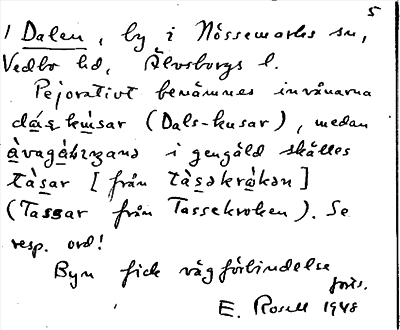 5
/ Dalen, by i Nössemarks sn,
Vedbo hd, Älvsborgs l.
Pejorativt benämnes invånarna
(Dals-kusar), medan
i gengäld skälles
tàsar [från tàsəkràkən]
(Tassar från Tassekroken). Se
resp. ord!
Byn fick vägförbindelse
forts.
E. Rosell 1948